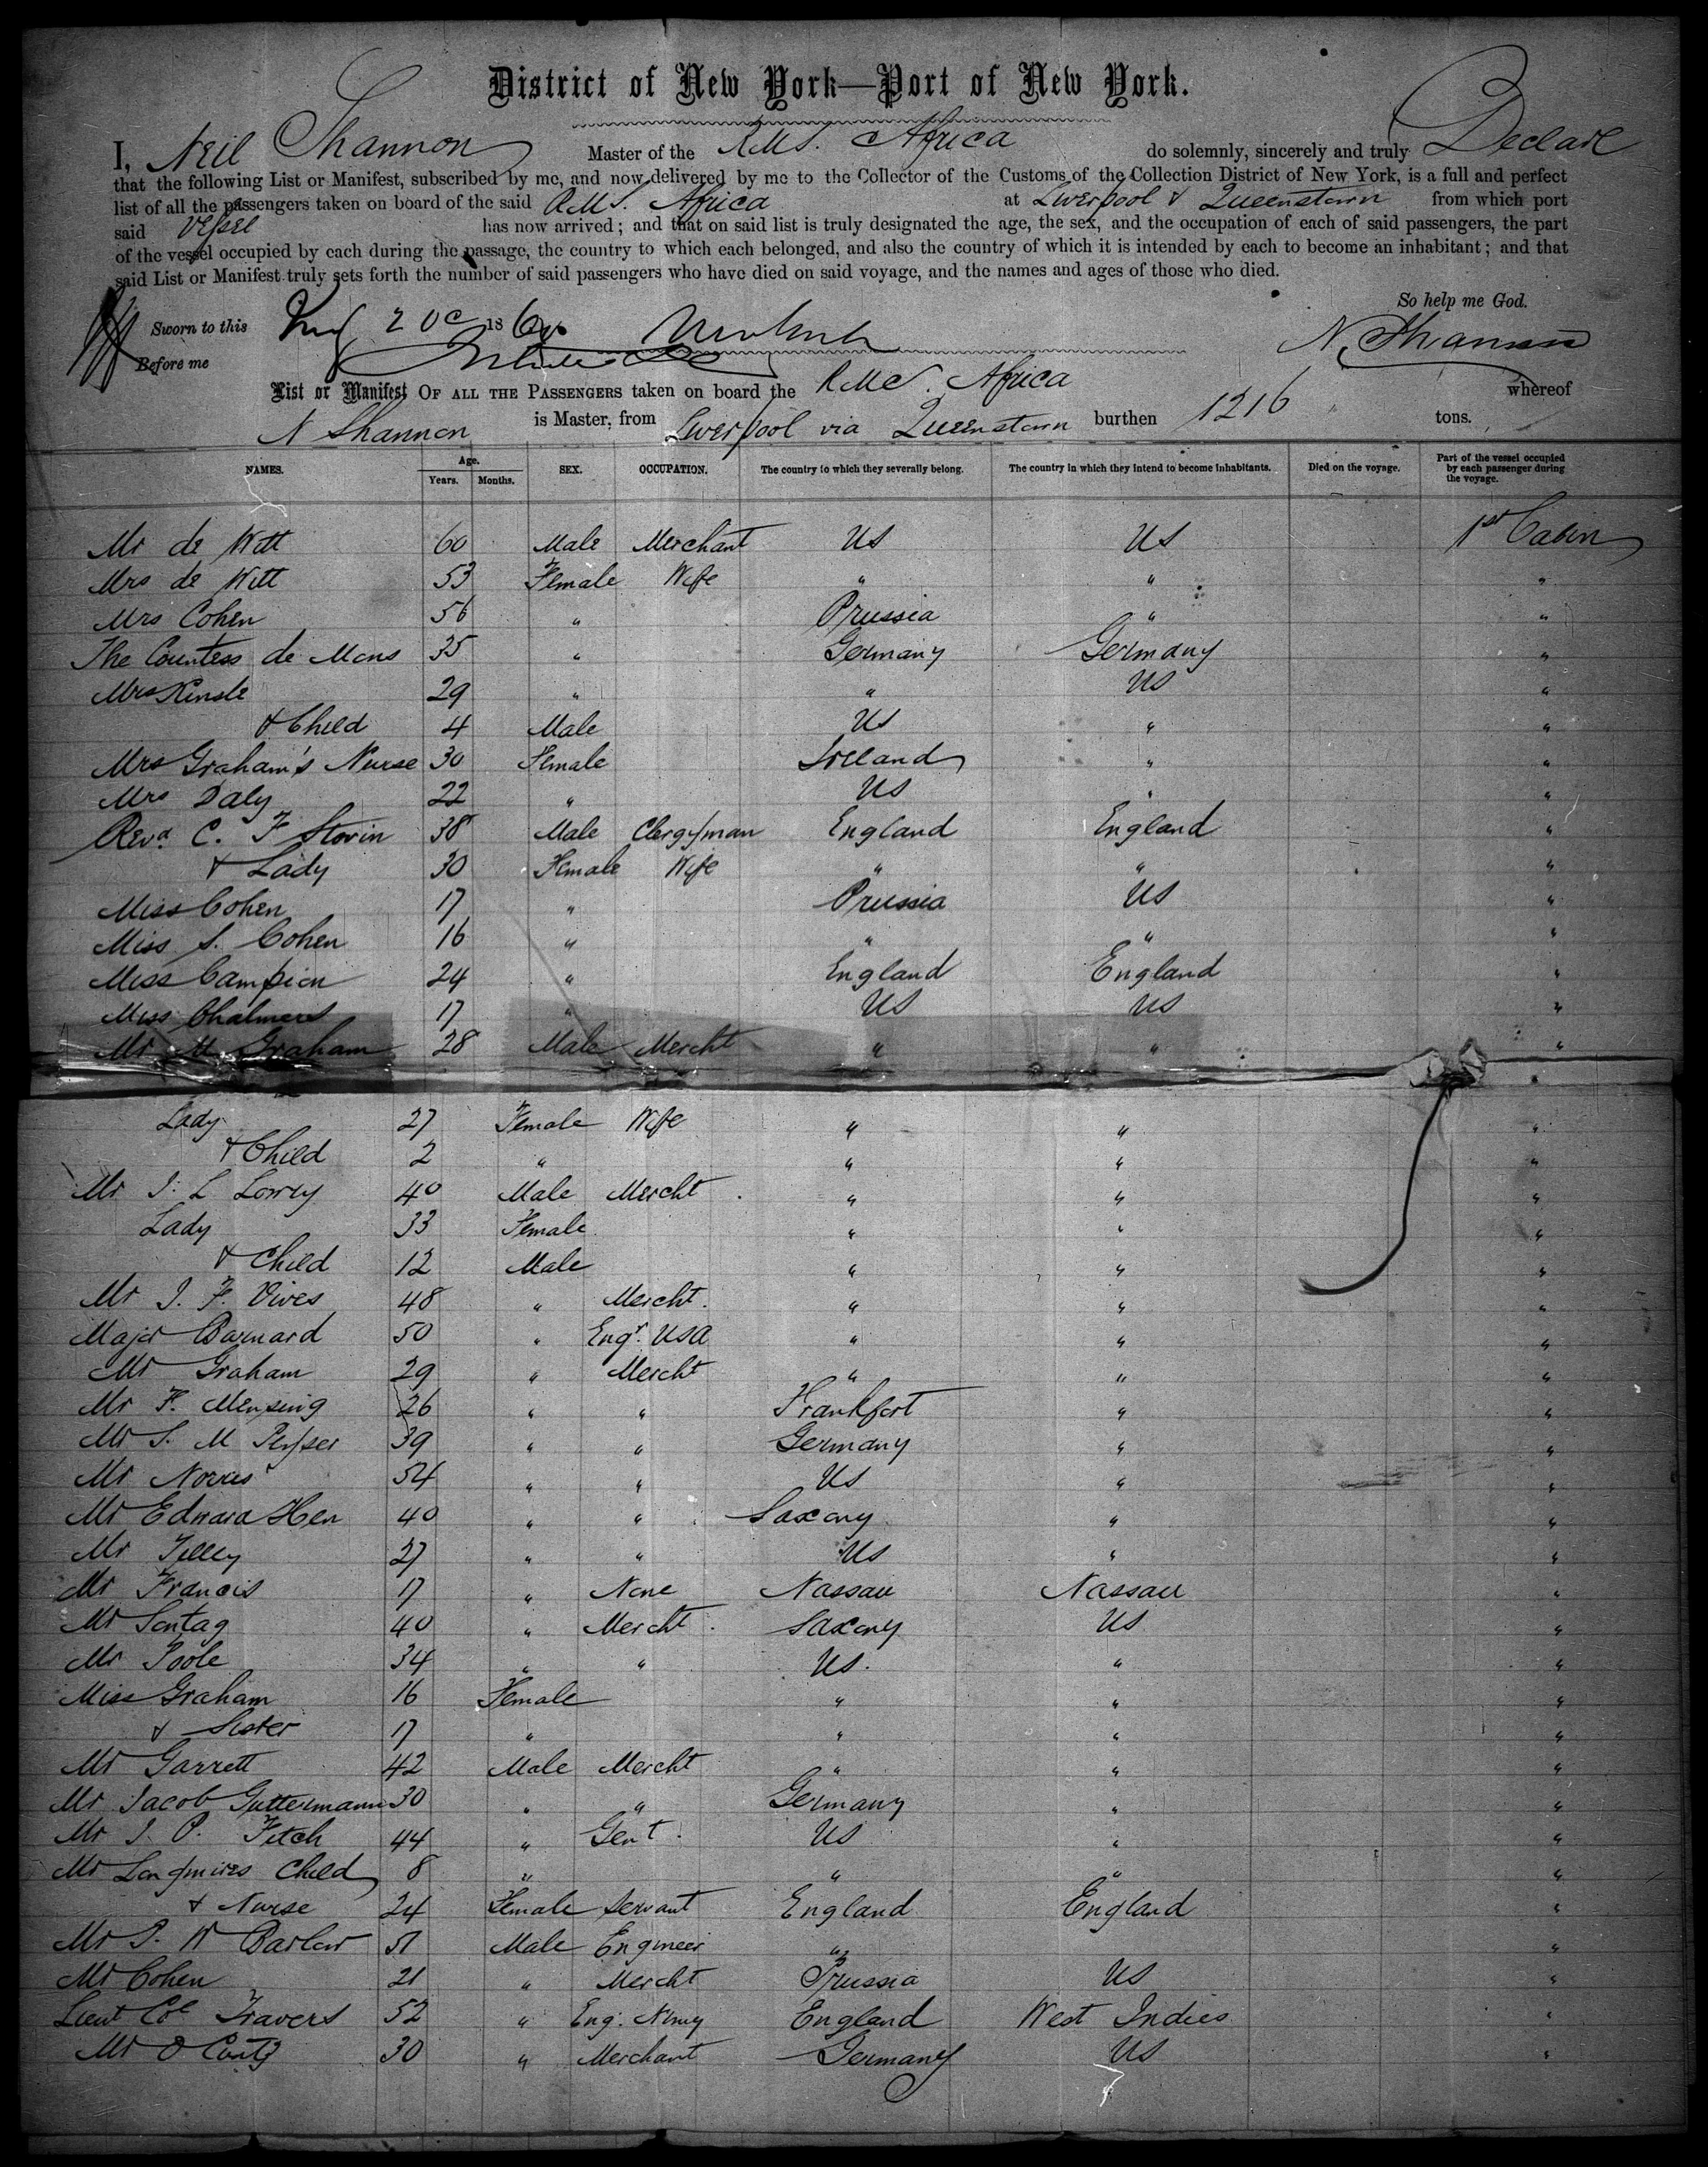 District of New York—Port of New York.
I, Neil Shannon Master of the R.M.S. Africa do solemnly, sincerely and truly Declare
that the following List or Manifest, subscribed by me, and now delivered by me to the Collector of the Customs of the Collection District of New York, is a full and perfect
list of all the passengers taken on board of the said R.M.S. Africa at Liverpool & Queenstown from which port
said Vessel has now arrived; and that on said list is truly designated the age, the sex, and the occupation of each of said passengers, the part
of the vessel occupied by each during the passage, the country to which each belonged, and also the country of which it is intended by each to become an inhabitant; and that
said List or Manifest truly sets forth the number of said passengers who have died on said voyage, and the names and ages of those who died.
So help me God.
Sworn to this 186
N. Shannon
Before me
List or Manifest OF ALL THE PASSENGERS taken on board the R.M.S. Africa whereof
N Shannon is Master, from Liverpool via Queenstown burthen 1216 tons.
NAMES. Age. Years. Months. SEX. OCCUPATION. The country to which they severally belong. The country in which they intend to become inhabitants. Died on the voyage. Part of the vessel occupied by each passenger during the voyage.
Mr de Witt 60 Male Merchant US US 1st Cabin
Mrs de Witt 53 Female Wife " " "
Mrs Cohen 56 " Prussia " "
The Countess de Mons 35 " Germany Germany "
Mrs 29 " " US "
& Child 4 Male US " "
Mrs Graham's Nurse 30 Female Ireland " "
Mrs Daly 22 " US " "
Revd. C. F Storin 38 Male Clergyman England England "
& Lady 30 Female Wife " " "
Miss Cohen 17 " Prussia US "
Miss S. Cohen 16 " " " "
Miss Campion 24 " England England "
Miss Chalmers 17 " US US "
Mr M Graham 28 Male Mercht " " "
Lady 27 Female Wife " " "
& Child 2 " " " "
Mr J. L Lowry 40 Male Mercht. " " "
Lady 33 Female " " "
& Child 12 Male " " "
Mr J. F. Vives 48 " Mercht. " " "
Major Barnard 50 " Engr. USA " " "
Mr Graham 29 " Mercht " " "
Mr F. Mensing 26 " " Frankfort " "
Mr S. M 39 " " Germany " "
Mr Norris 54 " " US " "
Mr Edward Hen 40 " " Saxony " "
Mr Tilley 27 " " US " "
Mr Francis 17 " None Nassau Nassau "
Mr Sontag 40 " Mercht. Saxony US "
Mr Poole 34 " " US. " "
Miss Graham 16 Female " " "
& Sister 17 " " " "
Mr Garrett 42 Male Mercht " " "
Mr Jacob Guttermann 30 " " Germany " "
Mr J. P. Fitch 44 " Gent. US " "
Mr Longmires Child 8 " " " "
& Nurse 24 Female Servant England England "
Mr P. W Barlow 51 Male Engineer " "
Mr Cohen 21 " Mercht Prussia US "
Lieut Cl Travers 52 " Eng. Army England West Indies "
Mr O 30 " Merchant Germany US "